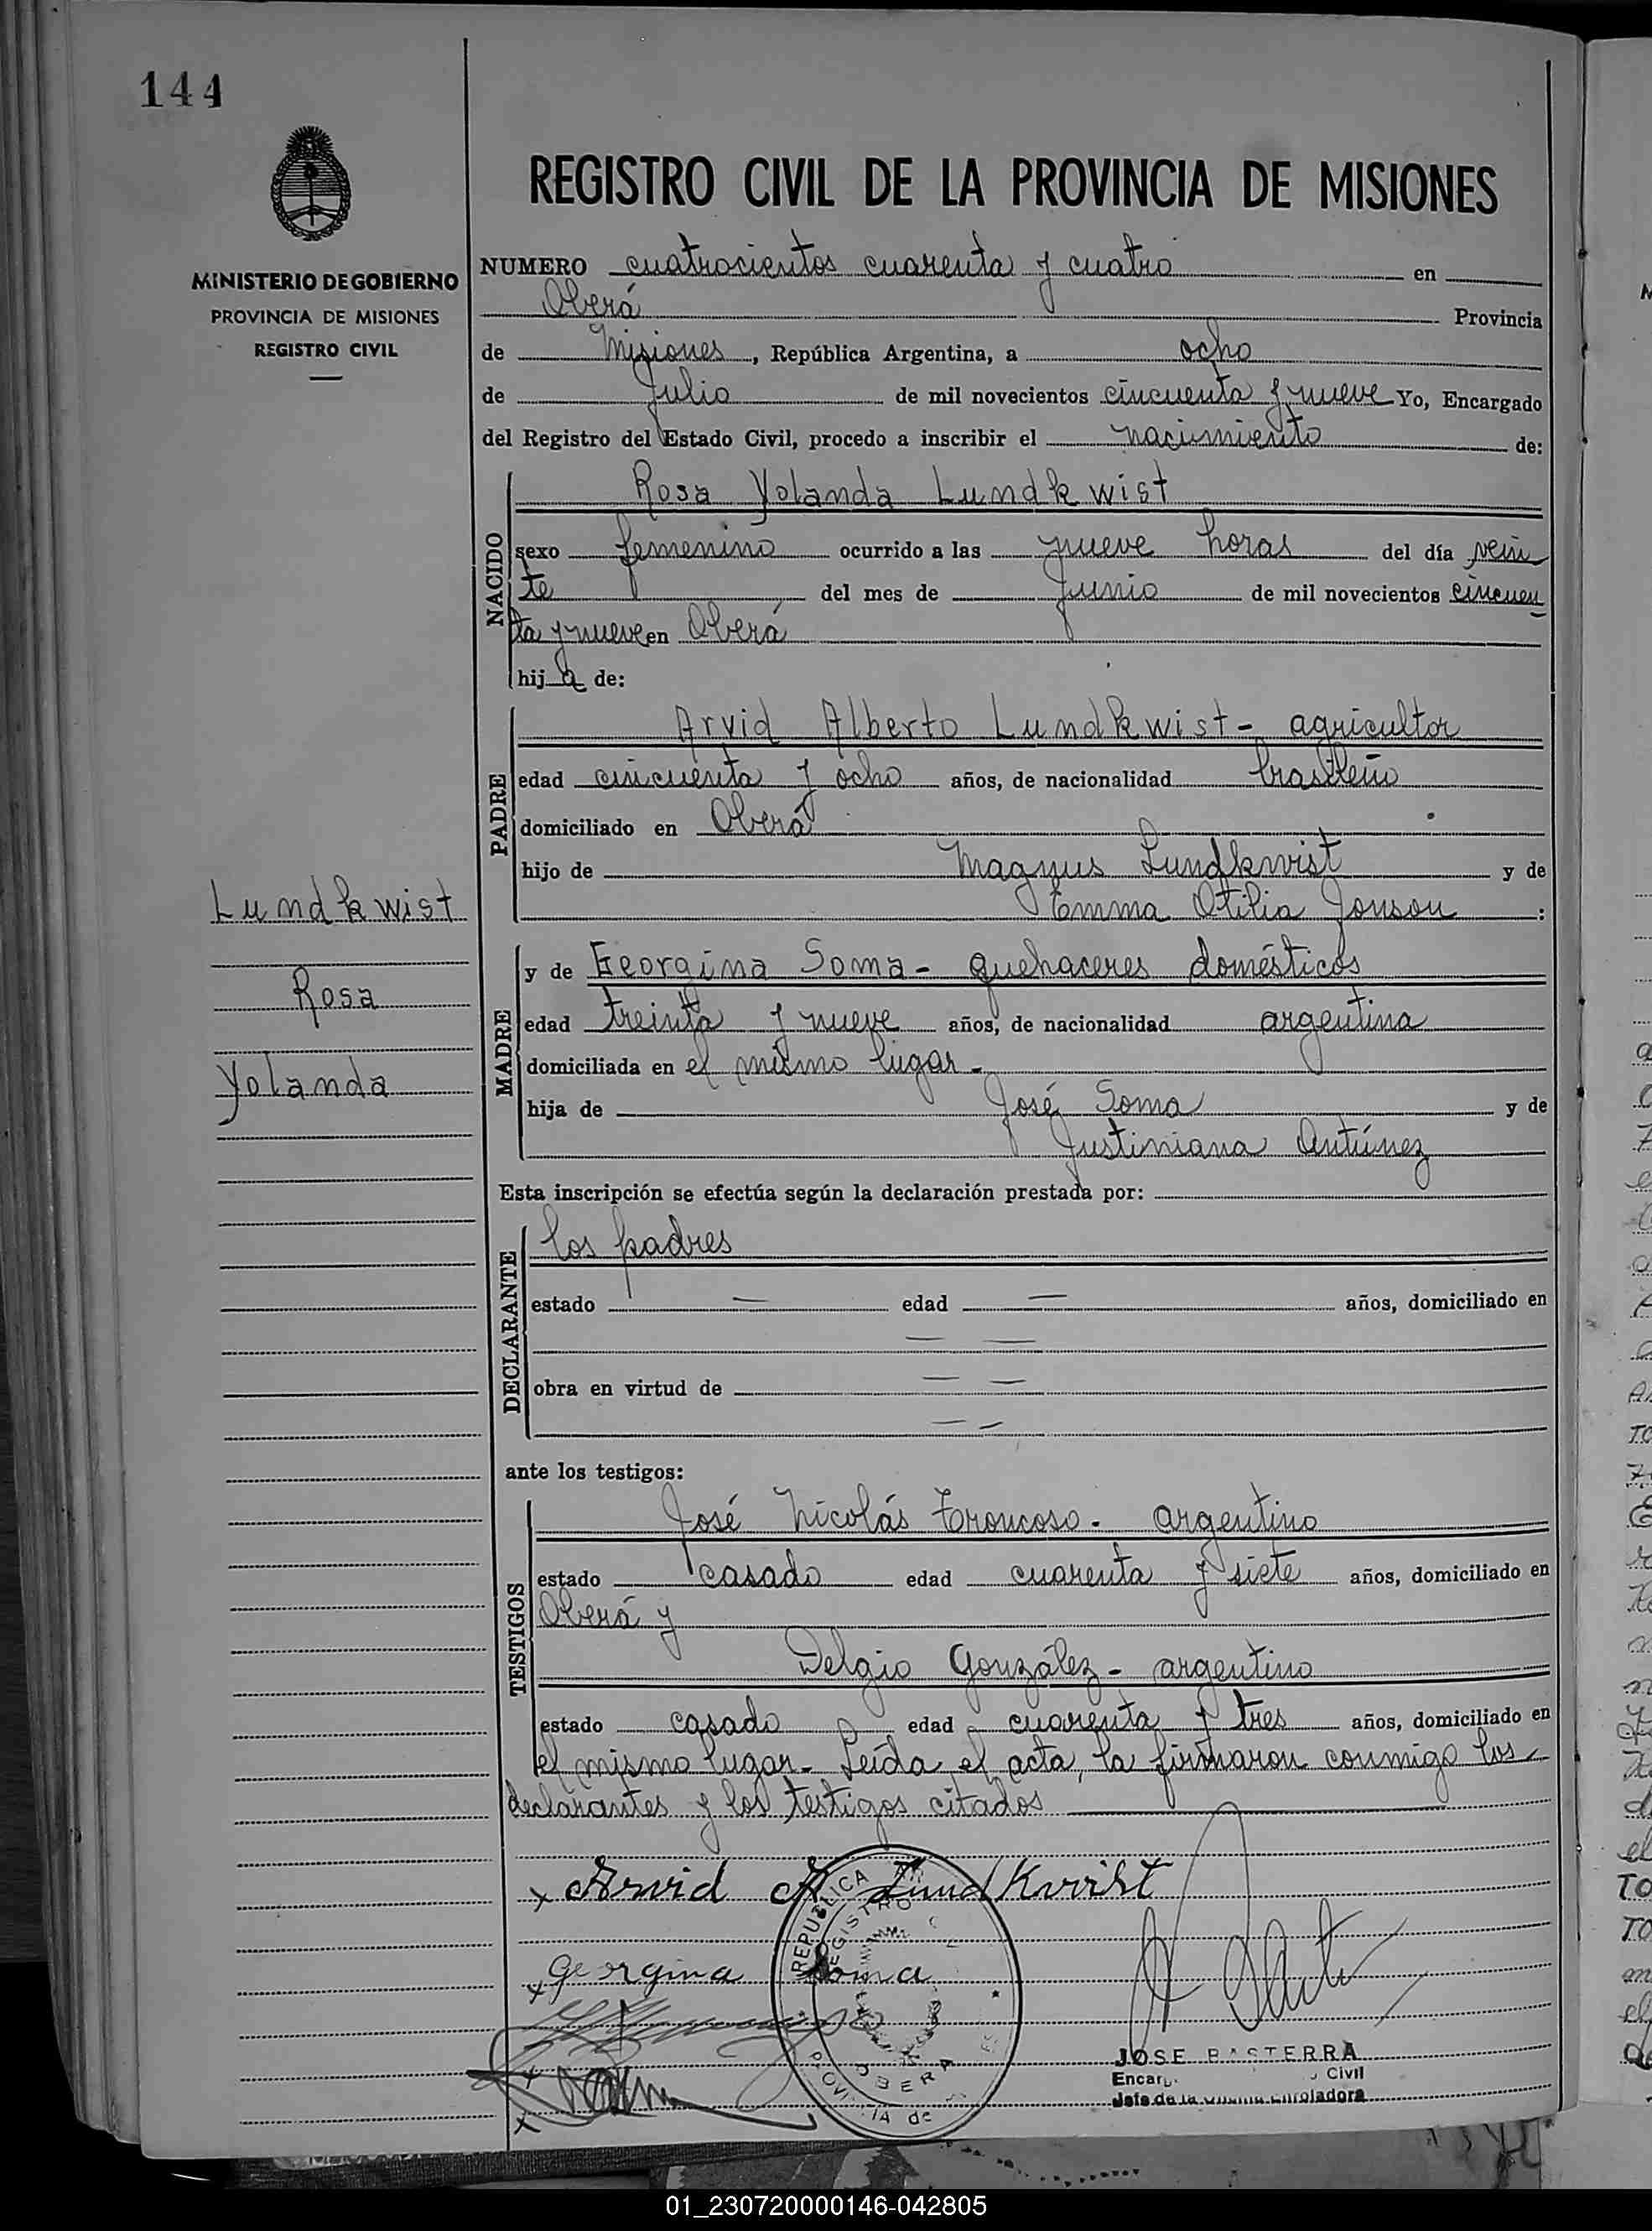 144
REGISTRO CIVIL DE LA PROVINCIA DE MISIONES
MINISTERIO DE GOBIERNO
PROVINCIA DE MISIONES
REGISTRO CIVIL
NUMERO cuatrocientos cuarenta y cuatro en
Oberá Provincia
de Misiones, República Argentina, a ocho
de Julio de mil novecientos cincuenta y nueve Yo, Encargado
del Registro del Estado Civil, procedo a inscribir el nacimiento de:
NACIDO
Rosa Yolanda Lundkwist
sexo femenino ocurrido a las nueve horas del día vein
te del mes de Junio de mil novecientos cincuen
ta y nueve en Oberá
hija de:
PADRE
Arvid Alberto Lundkwist - agricultor
edad cincuenta y ocho años, de nacionalidad brasileño
domiciliado en Oberá
hijo de Magnus Lundkwist y de
Emma Otilia Jonson :
Lundkwist
Rosa
Yolanda
MADRE
y de Georgina Soma - quehaceres domésticos
edad treinta y nueve años, de nacionalidad argentina
domiciliada en el mismo lugar -
hija de José Soma y de
Justiniana Antúnez
Esta inscripción se efectúa según la declaración prestada por:
DECLARANTE
los padres
estado — edad — años, domiciliado en
— —
obra en virtud de — —
— —
ante los testigos:
TESTIGOS
José Nicolás Troncoso - argentino
estado casado edad cuarenta y siete años, domiciliado en
Oberá y
Delgio González - argentino
estado casado edad cuarenta y tres años, domiciliado en
el mismo lugar - Leída el acta, la firmaron conmigo los
declarantes y los testigos citados
x Arvid A LundKvist
x georgina Soma
REPUBLICA
REGISTRO
OBERA
JOSE BASTERRA
Civil
Jefe de la Oficina Enroladora
01_230720000146-042805